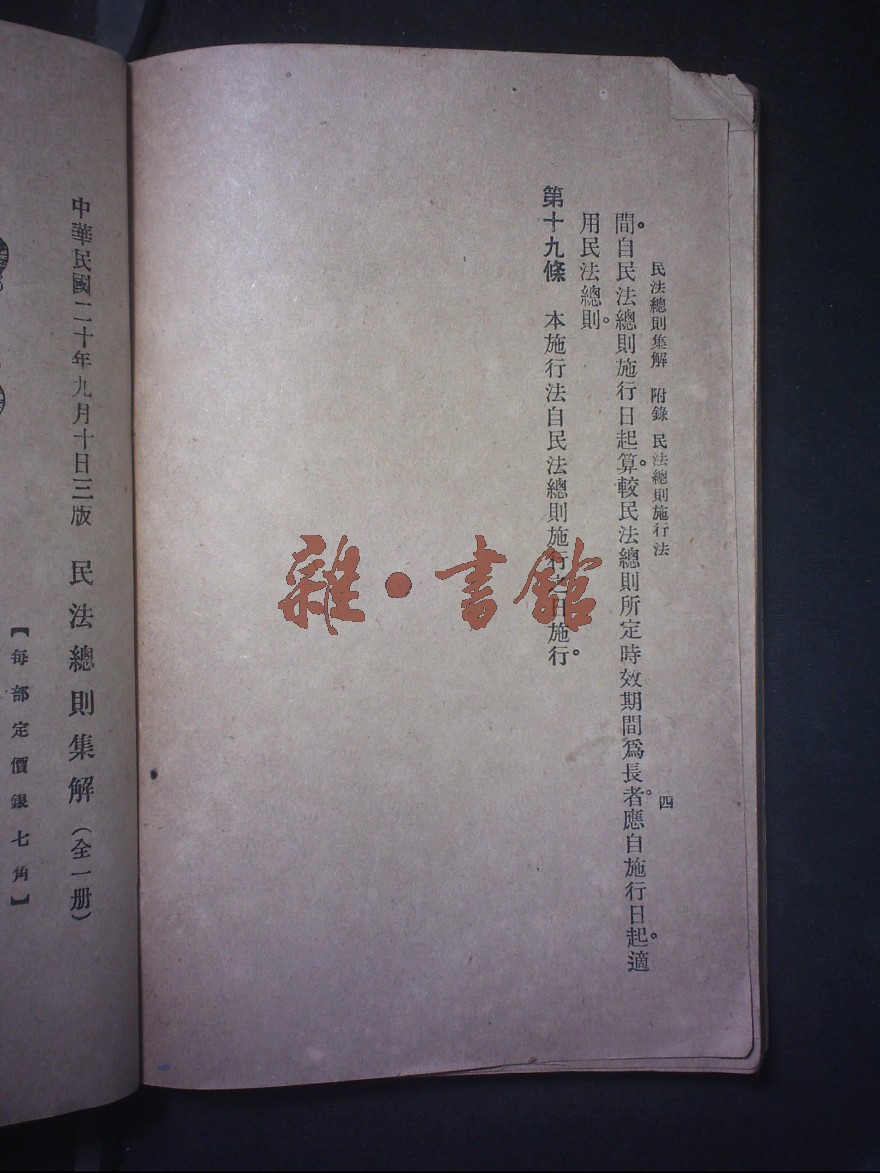 民法總則集解 附錄 民法總則施行法 四
間。自民法總則施行日起算。較民法總則所定時效期間爲長者。應自施行日起。適
用民法總則。
第十九條 本施行法自民法總則施行之日施行。
雜·書館
中華民國二十年九月十日三版 民法總則集解(全一册)
【每部定價銀七角】